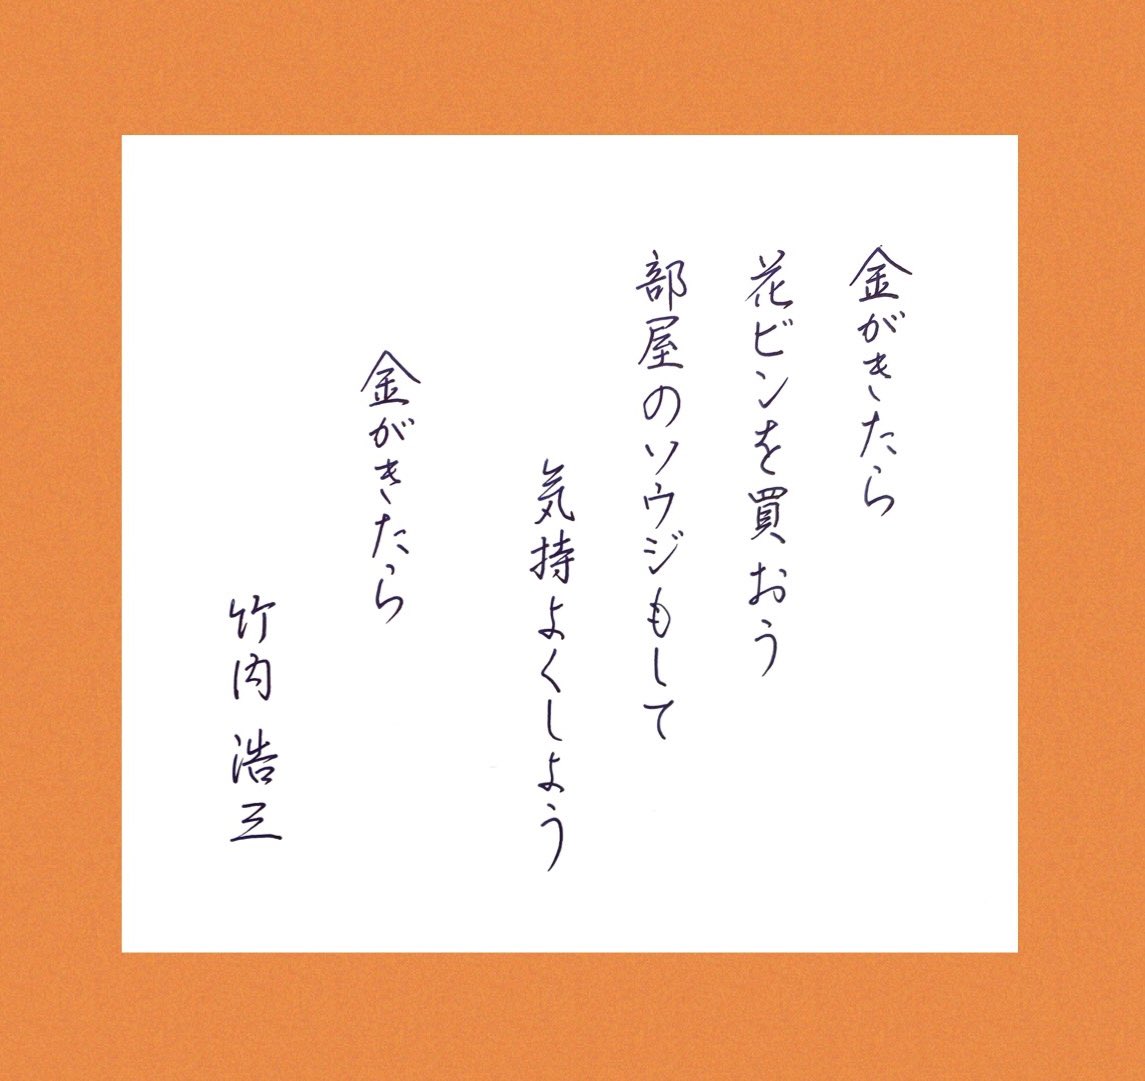 金がきたら
花ビンを買おう
部屋のソウジもして
気持よくしよう
金がきたら
竹内浩三